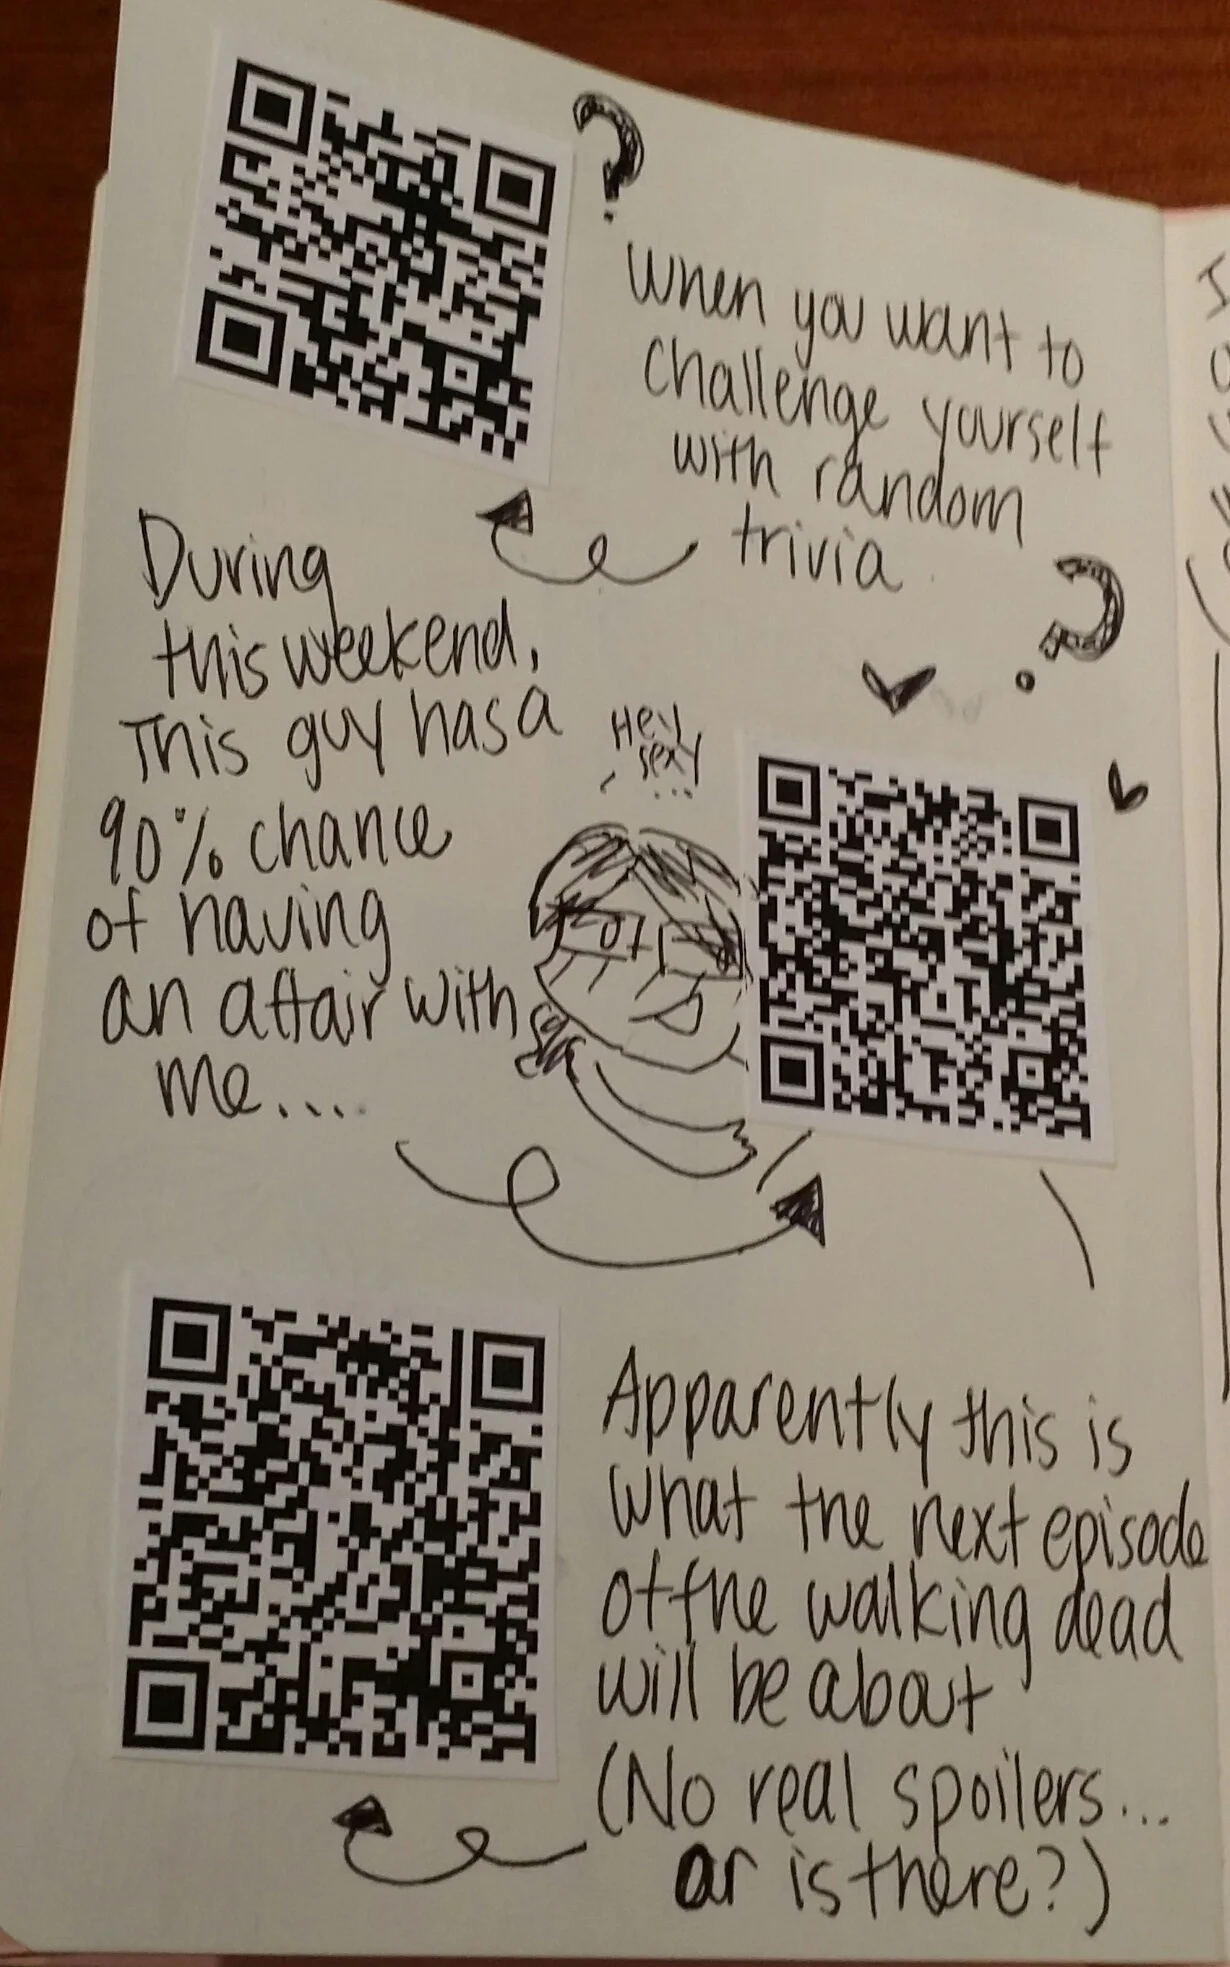 When you want to
challenge yourself
with random
trivia
During
this weekend,
This guy has a
90% chance
of having
an affair with
me...
Hey
sexy
...
Apparently this is
what the next episode
of the walking dead
will be about
(No real spoilers...
or is there?)